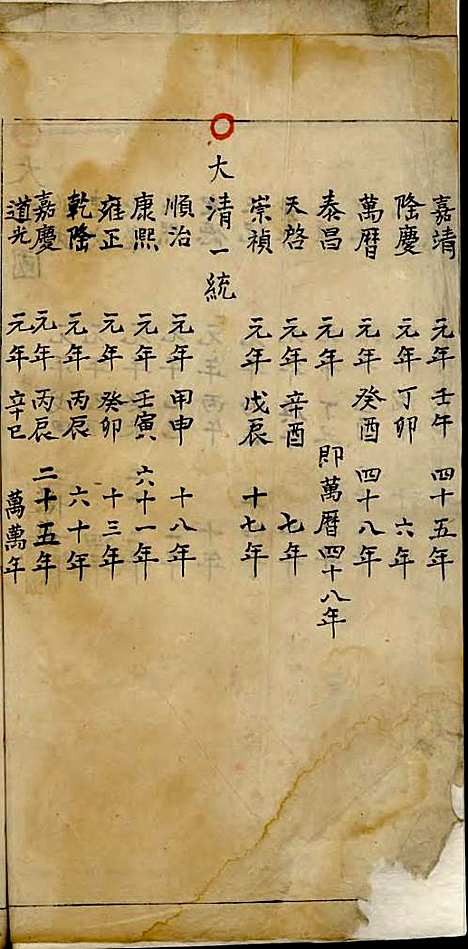 嘉靖 元年 壬午 四十五年
隆慶 元年 丁卯 六年
萬曆 元年 癸酉 四十八年
泰昌 元年 即萬曆四十八年
天啓 元年 辛酉 七年
崇禎 元年 戊辰 十七年
大清一統
順治 元年 甲申 十八年
康熙 元年 壬寅 六十一年
雍正 元年 癸卯 十三年
乾隆 元年 丙辰 六十年
嘉慶 元年 丙辰 二十五年
道光 元年 辛巳 萬萬年